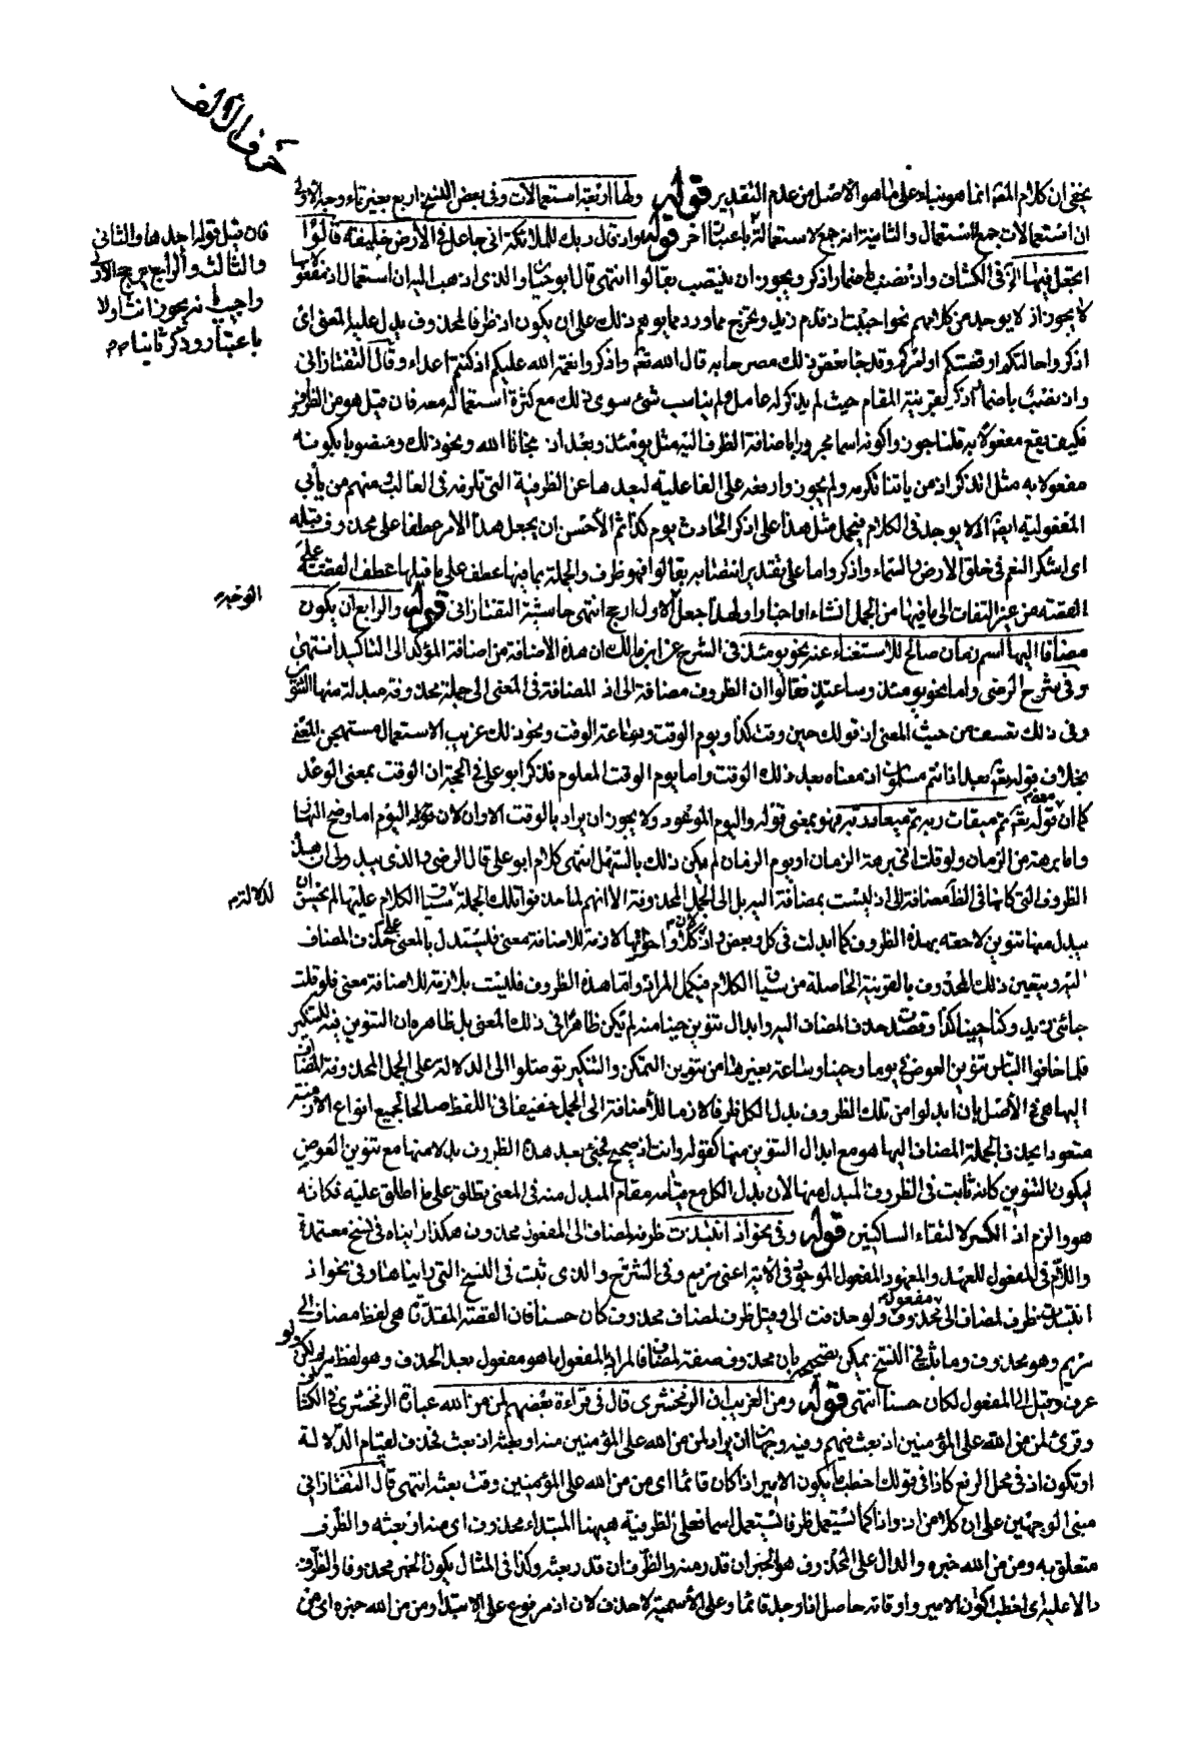 حرف الألف
يخفى ان كلام المص انما هو بناء على ما هو الأصل من عدم التقدير قوله ولها اربعة استعمالات وفى بعض النسخ اربع بغير تاء وجه الاولى
ان استعمالات جمع استعمال والثانية انه جمع لاستعمالة باعتبار اخر قوله واذ قال ربك للملائكة انى جاعل فى الأرض خليفة قالوا
اتجعل فيها الخ فى الكشاف واذ نصب باضمار اذكر ويجوز ان ينتصب بقالوا انتهى قال ابو حيان والذى اذهب اليه ان استعمال اذ مفعولا
لا يجوز اذ لا يوجد من كلامهم نحو احببت اذ قدم زيد ويخرج مما ورد مما يوهم ذلك على ان يكون اذ ظرفا لمحذوف يدل عليه المعنى اى
اذكروا حالتكم او قصتكم او امركم وقد جاء بعض ذلك مصرحا به قال الله تعم واذكروا نعمة الله عليكم اذ كنتم اعداء وقال التفتازانى
واذ نصب باضمار اذكر لقرينة المقام حيث لم يذكر له عامل ولم يناسب شئ سوى ذلك مع كثرة استعماله معه فان قيل هو من الظروف
فكيف يقع مفعولا به قلنا جوزوا كونه اسما مجرورا باضافة الظرف اليه مثل يومئذ وبعد اذ نجانا الله ونحو ذلك ومنصوبا بكونه
مفعولا به مثل اتذكر اذ من يأتنا نكرمه ولم يجوزوا رفعه على الفاعلية لبعدها عن الظرفية التى تلزمه فى الغالب منهم من يأبى
المفعولية ايضا اذ لا يوجد فى الكلام فيحمل مثل هذا على اذكر الحادث يوم كذا ثم الأحسن ان يجعل هذا الامر عطفا على محذوف قبله
اى اشكر النعم فى خلق الارض والسماء واذكر واما على تقدير انتصابه بقالوا فهو ظرف والجملة بما فيها عطف على ما قبلها عطف القصة على
القصة من غير التفات الى ما فيها من الجمل انشاء او اخبارا ولهذا جعل الاول ارجح انتهى حاشية التفتازانى قوله والرابع ان يكون
مضافا اليها اسم زمان صالح للاستغناء عنه نحو يومئذ فى الشرح عن ابن مالك ان هذه الاضافة من اضافة المؤكد الى التأكيد انتهى
وفى شرح الرضى واما نحو يومئذ وساعتئذ فقالوا ان الظروف مضافة الى اذ المضافة فى المعنى الى جملة محذوفة مبدلة منها التنوين
وفى ذلك تعسف من حيث المعنى اذ قولك حين وقت كذا ويوم الوقت وساعة الوقت ونحو ذلك غريب الاستعمال مستهجن المعنى
بخلاف قوله تعم بعد اذ انتم مسلمون اذ معناه بعد ذلك الوقت واما يوم الوقت المعلوم فذكر ابو على فى الحجة ان الوقت بمعنى الوعد
كما ان قوله تعم فتم ميقات ربه تم ميعاد ربه فهو بمعنى قوله واليوم الموعود ولا يجوز ان يراد بالوقت الاوان لان قوله اليوم اما وضح النهار
واما برهة من الزمان ولو قلت الى برهة الزمان او يوم الزمان لم يكن ذلك بالسهل انتهى كلام ابو على قال الرضى والذى يبدو لى ان هذه
الظروف التى كانها فى الظ مضافة الى اذ ليست بمضافة اليه بل الى الجمل المحذوفة الا انهم لما حذفوا تلك الجملة لسياق الكلام عليها لم يحسن ان
يبدل منها تنوين لاحقة بهذه الظروف كما ابدلت فى كل وبعض واذ لان كلا واخواتها لازمة للاضافة معنى فليستدل بالمعنى على حذف المضاف
اليه ويتعين ذلك المحذوف بالقرينة الحاصلة من سياق الكلام فيكمل المراد واما هذه الظروف فليست بلازمة للاضافة معنى فلو قلت
جائنى زيد وكنا حينا كذا وقصدت حذف المضاف اليه وابدال تنوين حينا منه لم يكن ظاهرا فى ذلك المعنى بل ظاهره ان التنوين فيه للتنكير
فلما خافوا التباس تنوين العوض فى يوما وحينا وساعة بغيرها من تنوين التمكن والتنكير توصلوا الى الدلالة على الجمل المحذوفة المضاف
اليها هى فى الأصل بان ابدلوا من تلك الظروف بدل الكل ظرفا لازما للأضافة الى الجمل خفيفا فى اللفظ صالحا لجميع انواع الأزمنة
متعودا بحذف الجملة المضاف اليها هو مع ابدال التنوين منها كقوله وانت اذ صحيح فجئ بعد هذه الظروف بدلا منها مع تنوين العوض
ليكون التنوين كانه ثابت فى الظروف المبدل منها لأن بدل الكل مع قيامه مقام المبدل منه فى المعنى يطلق على ما اطلق عليه فكانه
هو والزم اذ الكسر لالتقاء الساكنين قوله وفى نحو اذ انتبذت ظرف لمضاف الى المفعول محذوف هكذا رايناه فى نسخ معتمدة
واللام فى المفعول للعهد والمعهود المفعول الموجود فى الأية اعنى مريم وفى الشرح والذى ثبت فى النسخ التى رايناها وفى نحو اذ
انتبذت ظرف لمضاف الى مفعول محذوف ولو حذفت الى وقيل ظرف لمضاف محذوف كان حسنا فان القصة المقدرة هى لفظ مضاف الى
مريم وهو محذوف وما ثبت فى النسخ يمكن تصحيحه بان محذوف صفة لمضاف والمراد بالمفعول ما هو مفعول بعد الحذف وهو لفظ مريم ولكن لو
عرف وقيل الى المفعول لكان حسنا انتهى قوله ومن الغريب ان الزمخشرى قال فى قراءة بعضهم لمن من الله عبارة الزمخشرى فى الكشاف
وقرئ لمن من الله على المؤمنين اذ بعث فيهم وفيه وجهان ان يراد لمن من الله على المؤمنين منه او بعثه اذ بعث فحذف لقيام الدلالة
او تكون اذ فى محل الرفع كاذا فى قولك اخطب ما يكون الامير اذا كان قائما اى من من الله على المؤمنين وقت بعثه انتهى قال التفتازانى
مبنى الوجهين على ان كلا من اذ واذا كما تستعمل ظرفا تستعمل اسما فعلى الظرفية ههنا المبتداء محذوف اى منه او بعثه والظرف
متعلق به ومن من الله خبره والدال على المحذوف هو الخبر ان قدر منه والظرف ان قدر بعثه وكذا فى المثال يكون الخبر محذوفا والظرف
دالا عليه اى اخطب اكوان الامير واوقاته حاصل اذا وجد قائما وعلى الأسمية لا حذف لان اذ مرفوع على الابتداء ومن من الله خبره اى من
فان قيل قوله احدها والثانى
والثالث والرابع يرجح الاولى
واجيب بانه يجوز انث اولا
باعتبار وذكر ثانيا